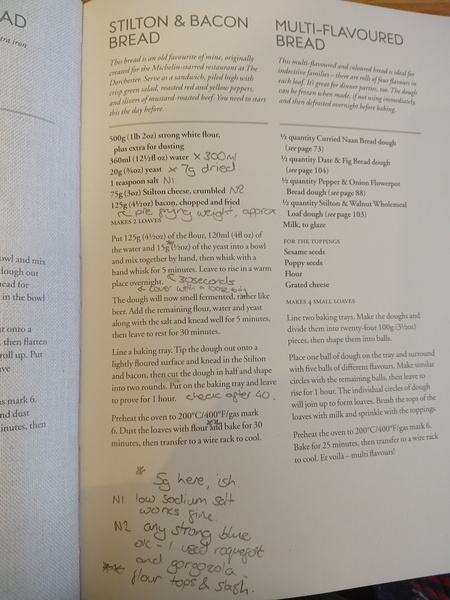 AD
tra iron
STILTON & BACON
BREAD
This bread is an old favourite of mine, originally
created for the Michelin-starred restaurant at The
Dorchester. Serve as a sandwich, piled high with
crisp green salad, roasted red and yellow peppers,
and slivers of mustard-roasted beef. You need to start
this the day before.
500g (1lb 2oz) strong white flour,
plus extra for dusting
360ml (12½fl oz) water × 300ml
20g (¾oz) yeast × 7g dried
1 teaspoon salt N1
75g (3oz) Stilton cheese, crumbled N2
125g (4½oz) bacon, chopped and fried
pre frying weight, approx
MAKES 2 LOAVES
Put 125g (4½oz) of the flour, 120ml (4fl oz) of
the water and 15g (½oz) of the yeast into a bowl
and mix together by hand, then whisk with a
hand whisk for 5 minutes. Leave to rise in a warm
place overnight. 30seconds
& cover with a loose
The dough will now smell fermented, rather like
beer. Add the remaining flour, water and yeast
along with the salt and knead well for 5 minutes,
then leave to rest for 30 minutes.
Line a baking tray. Tip the dough out onto a
lightly floured surface and knead in the Stilton
and bacon, then cut the dough in half and shape
into two rounds. Put on the baking tray and leave
to prove for 1 hour. check after 40.
Preheat the oven to 200°C/400°F/gas mark
6. Dust the loaves with flour ** and bake for 30
minutes, then transfer to a wire rack to cool.
* 5g here, ish.
N1 low sodium salt
works fine
N2 any strong blue
ok - I used roquefort
and gorgozola -
** flour tops & slash.
MULTI-FLAVOURED
BREAD
This multi-flavoured and coloured bread is ideal for
indecisive families – there are rolls of four flavours in
each loaf. It's great for dinner parties, too. The dough
can be frozen when made, if not using immediately,
and then defrosted overnight before baking.
½ quantity Curried Naan Bread dough
(see page 73)
½ quantity Date & Fig Bread dough
(see page 104)
½ quantity Pepper & Onion Flowerpot
Bread dough (see page 88)
½ quantity Stilton & Walnut Wholemeal
Loaf dough (see page 103)
Milk, to glaze
FOR THE TOPPINGS
Sesame seeds
Poppy seeds
Flour
Grated cheese
MAKES 4 SMALL LOAVES
Line two baking trays. Make the doughs and
divide them into twenty-four 100g (3½oz)
pieces, then shape them into balls.
Place one ball of dough on the tray and surround
with five balls of different flavours. Make similar
circles with the remaining balls, then leave to
rise for 1 hour. The individual circles of dough
will join up to form loaves. Brush the tops of the
loaves with milk and sprinkle with the toppings.
Preheat the oven to 200°C/400°F/gas mark 6.
Bake for 25 minutes, then transfer to a wire rack
to cool. Et voilà – multi flavours!